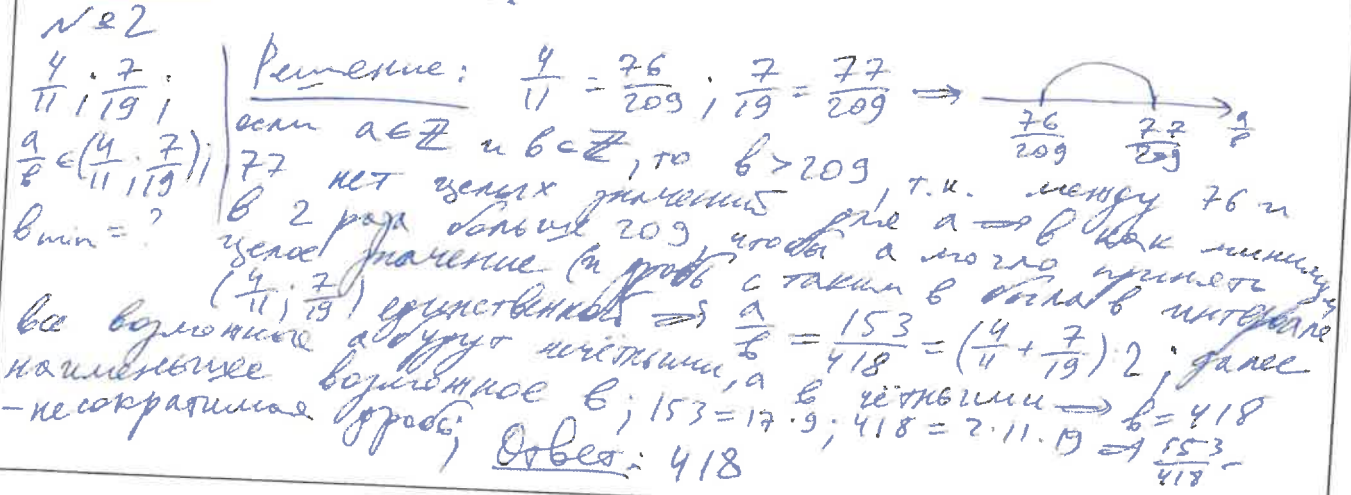 №2
4/11 ; 7/19 ;
a/в ∈ (4/11 ; 7/19) ;
в min = ?
Решение: 4/11 = 76/209 ; 7/19 = 77/209 ⇒ 76/209 77/209 a/в
если a∈Z и в∈Z, то в > 209, т.к. между 76 и
77 нет целых значений для a ⇒ в как минимум
в 2 раза больше 209, чтобы a могло принять
целое значение (и дробь с таким в была в интервале
(4/11 ; 7/19) единственной ⇒ a/в = 153/418 = (4/11 + 7/19) : 2 ; далее
все возможные a будут нечётными, а в чётными ⇒ в = 418
наименьшее возможное в ; 153 = 17·9 ; 418 = 2·11·19 ⇒ 153/418 –
– несократимая дробь; Ответ: 418